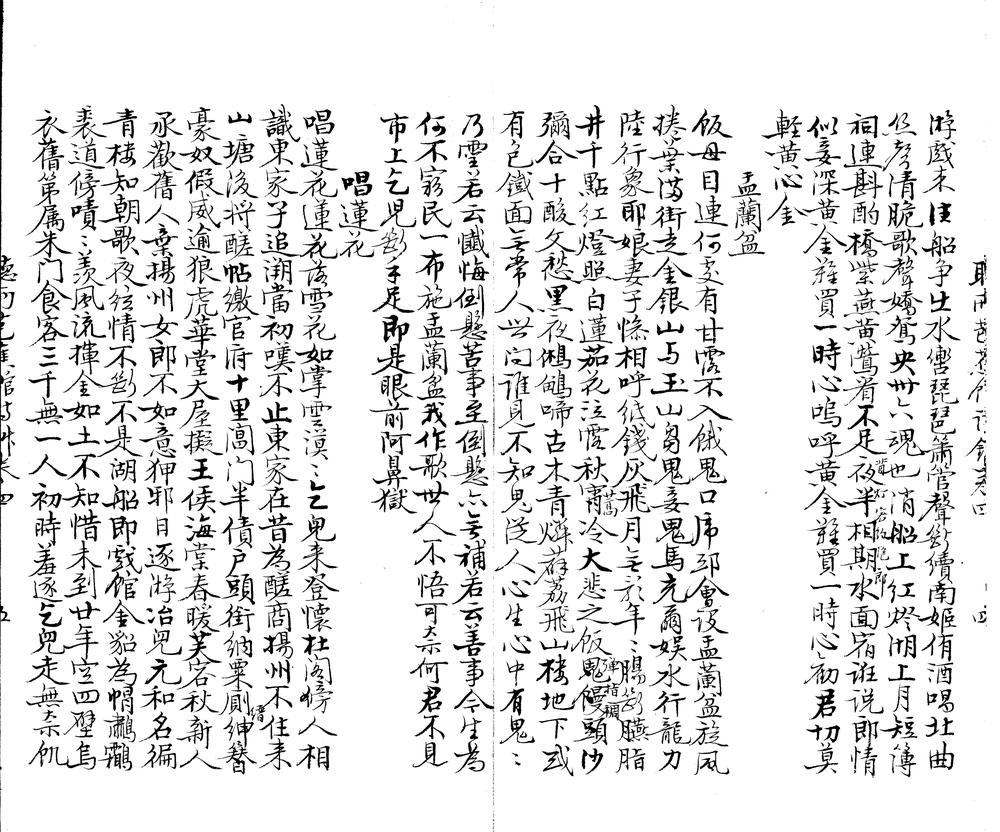 游戲未注船爭出水窻琵琶簫管聲斷續南姬侑酒唱北曲
聲清脆歌聲嬌鴛央卅六魂也消船上紅燈湖上月短簿
祠連斟酌橋紫燕黃鶯看不足夜半相期水面宿誰說郎情
似妾深黃金難買一時心嗚呼黃金難買一時心勸君切莫
輕黃金
盂蘭盆
飯母目連何處有甘露不入餓鬼口席邱會設盂蘭盆旋風
捲葉滿街走金銀山与玉山芻鬼妾鬼馬充爾娛水行龍力
陸行象耶娘妻子慘相呼紙錢灰飛月無影年〻腸斷臙脂
井千點紅燈照白蓮茄花泣露秋宵冷大悲之飯鬼饅頭沙
彌合十酸文愁黑夜鵂鶹啼古木青燐薜荔飛山樓地下或
有包鐵面無常人世问誰見不知鬼從人心生心中有鬼〻
乃靈若云懺悔倒懸苦事至倒懸亦無補若云善事今生為
何不窮民一布施盂蘭盆我作歌世人不悟可奈何君不見
市上乞兒斷手足即是眼前阿鼻獄
唱蓮花
唱蓮花蓮花落雪花如掌雲漠〻乞兒来登懷杜閣傍人相
識東家子追溯當初嘆不止東家在昔為醝商揚州不住来
山塘後將醝帖繳官府十里高门半債户頭銜納粟廁紳簪
豪奴假威逾狼虎華堂大屋擬王侯海棠春暖芙容秋新人
承歡舊人棄揚州女郎不如意狎邪日逐游冶兒元和名徧
青樓知朝歌夜絃情不斷不是湖船即戲館金貂為帽鸘
裘道傍嘖〻羨風流揮金如土不知惜未到廿年空四壁烏
衣舊第属朱门食客三千無一人初時羞逐乞兒走無奈飢